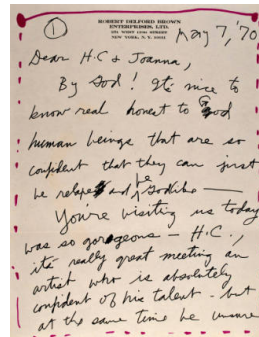 ①
ROBERT DELFORD BROWN
ENTERPRISES, LTD.
251 WEST 13th STREET
NEW YORK, N. Y. 10011
May 7, '70
Dear H.C & Joanna,
By God! It's nice to
know real honest to God
human beings that are so
confident that they can just
be relaxed and be Godlike —
You're visiting us today
was so gorgeous — H.C.,
it's really great meeting an
artist who is absolutely
confident of his talent - but
at the same time be unsure